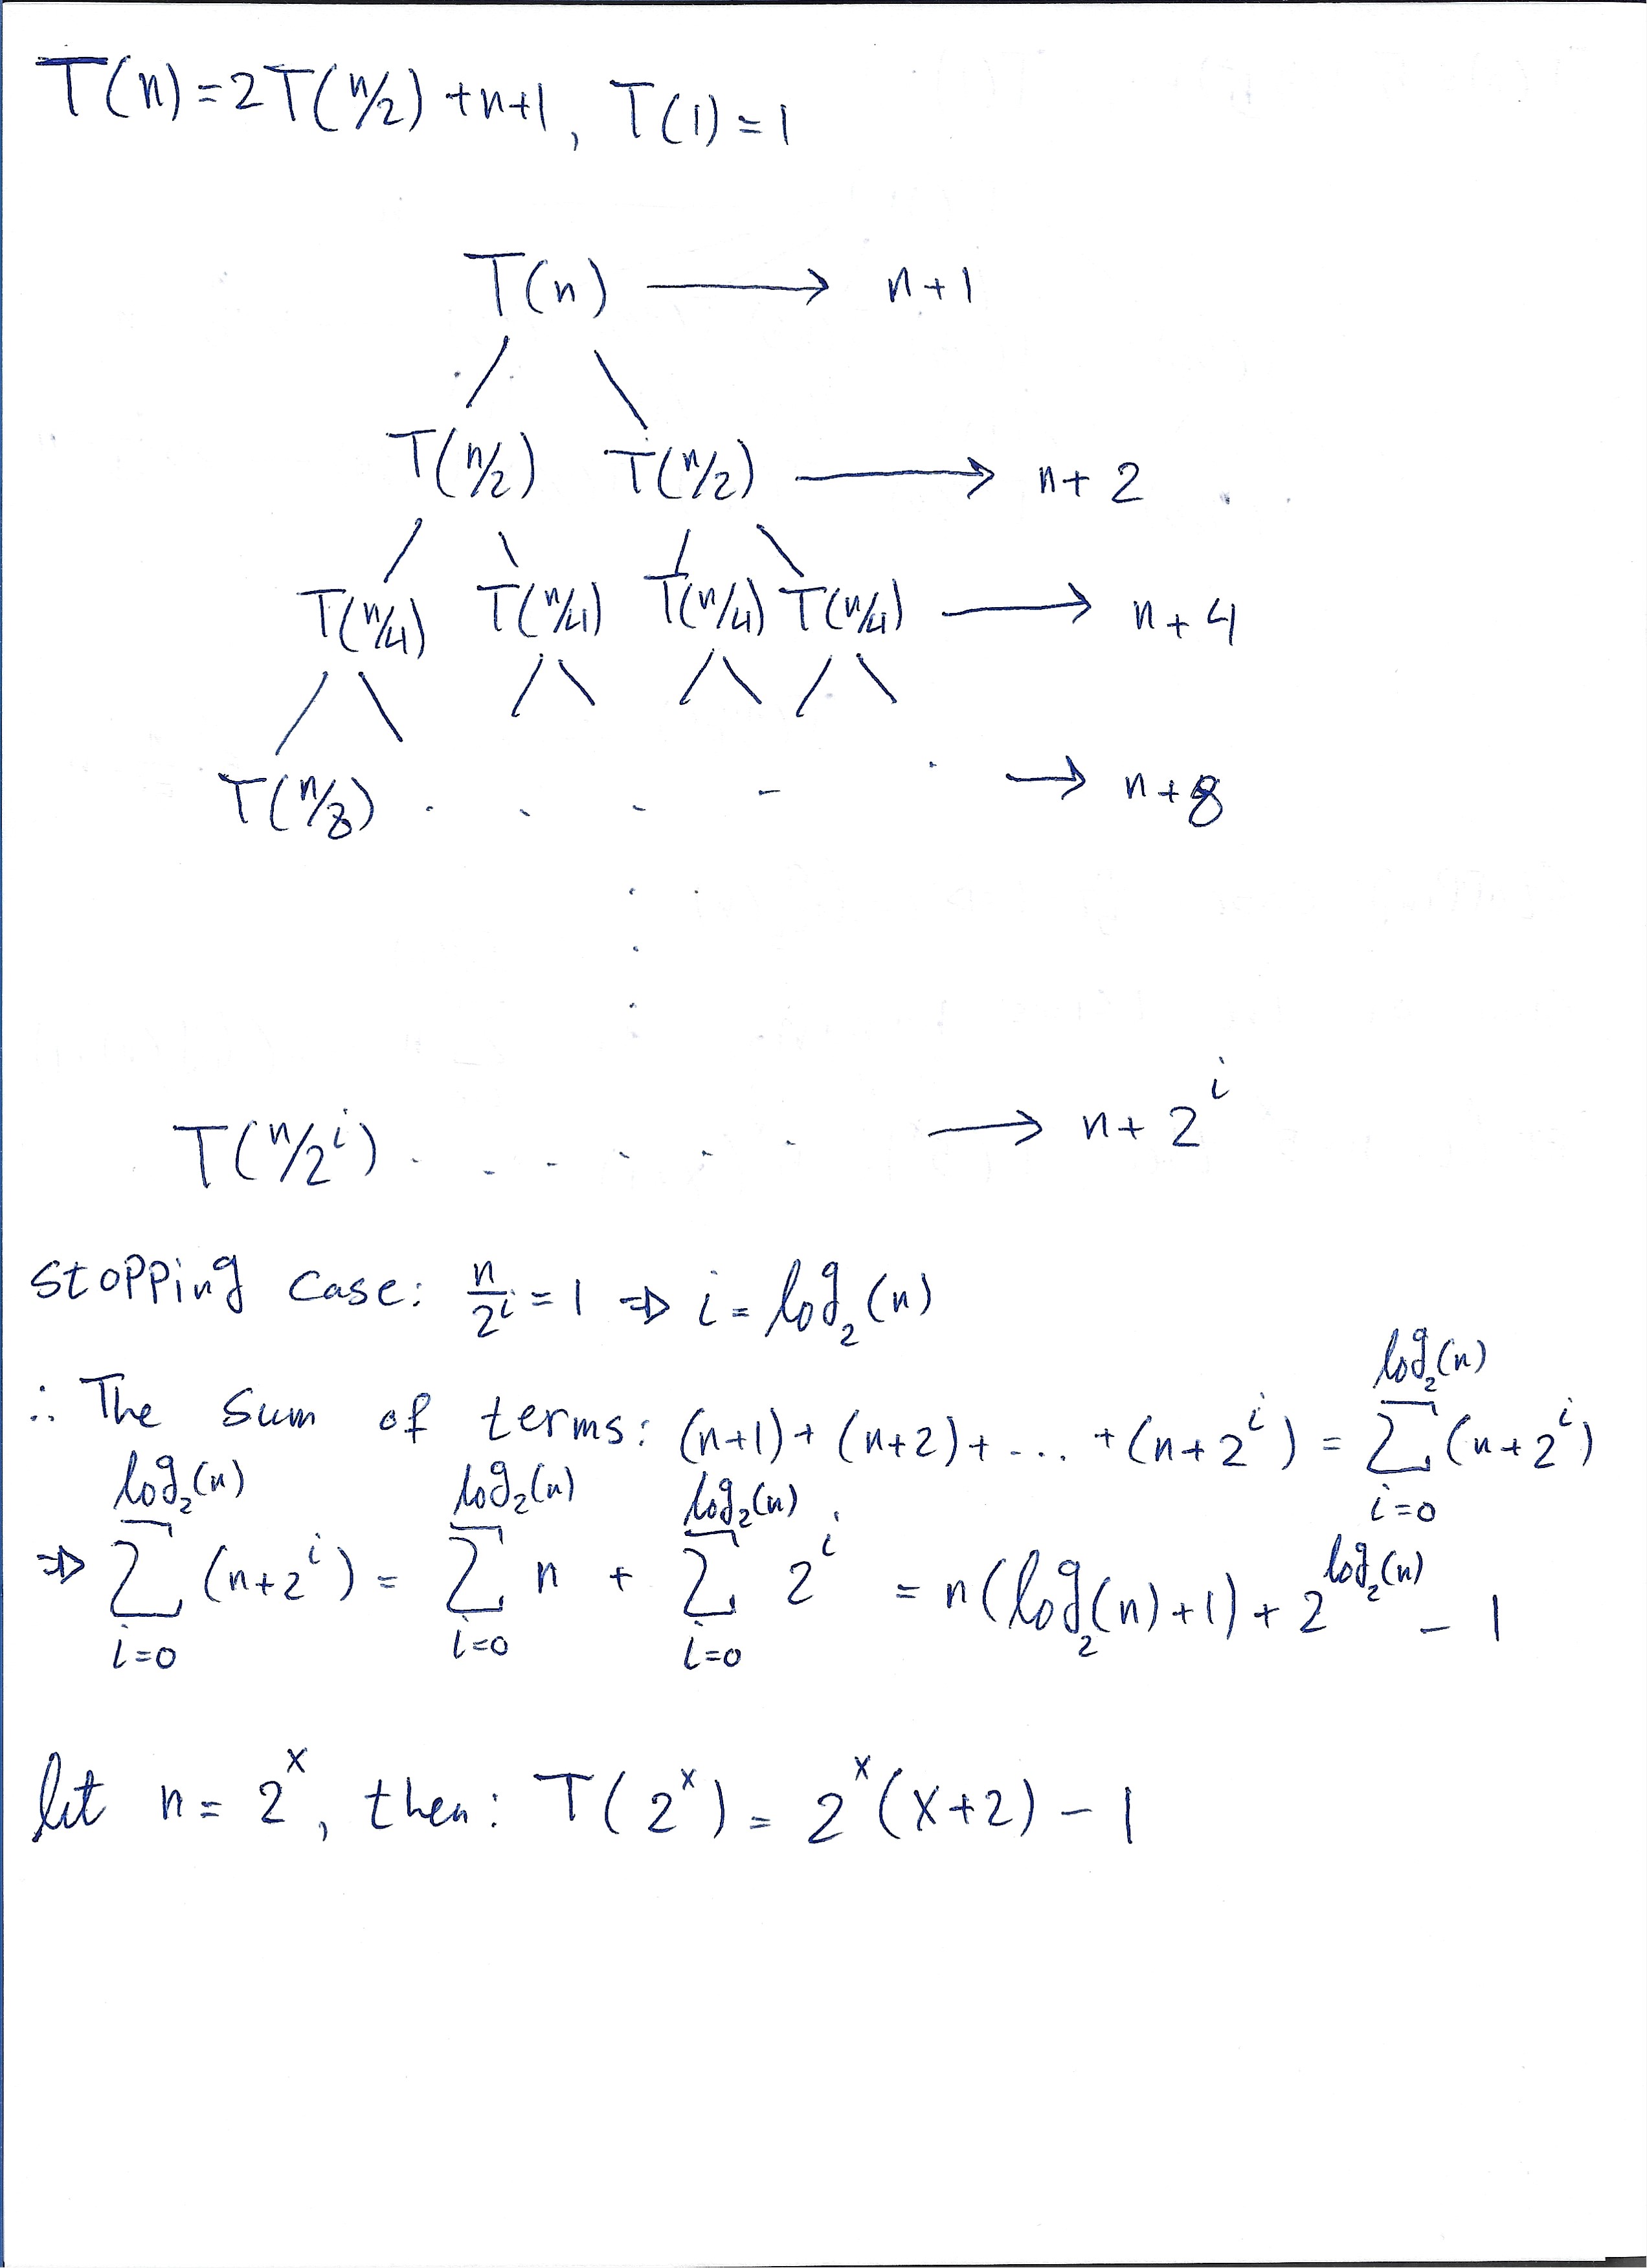 T(n)=2T(n/2)+n+1, T(1)=1
T(n) → n+1
T(n/2) T(n/2) → n+2
T(n/4) T(n/4) T(n/4) T(n/4) → n+4
T(n/8) . . . . . → n+8
T(n/2^i) . . . . . . → n+2^i
stopping case: n/2^i = 1 ⇒ i = log₂(n)
∴ The sum of terms: (n+1)+(n+2)+...+(n+2^i) = ∑_{i=0}^{log₂(n)} (n+2^i)
⇒ ∑_{i=0}^{log₂(n)} (n+2^i) = ∑_{i=0}^{log₂(n)} n + ∑_{i=0}^{log₂(n)} 2^i = n(log₂(n)+1) + 2^{log₂(n)} - 1
let n = 2^x, then: T(2^x) = 2^x(x+2) - 1